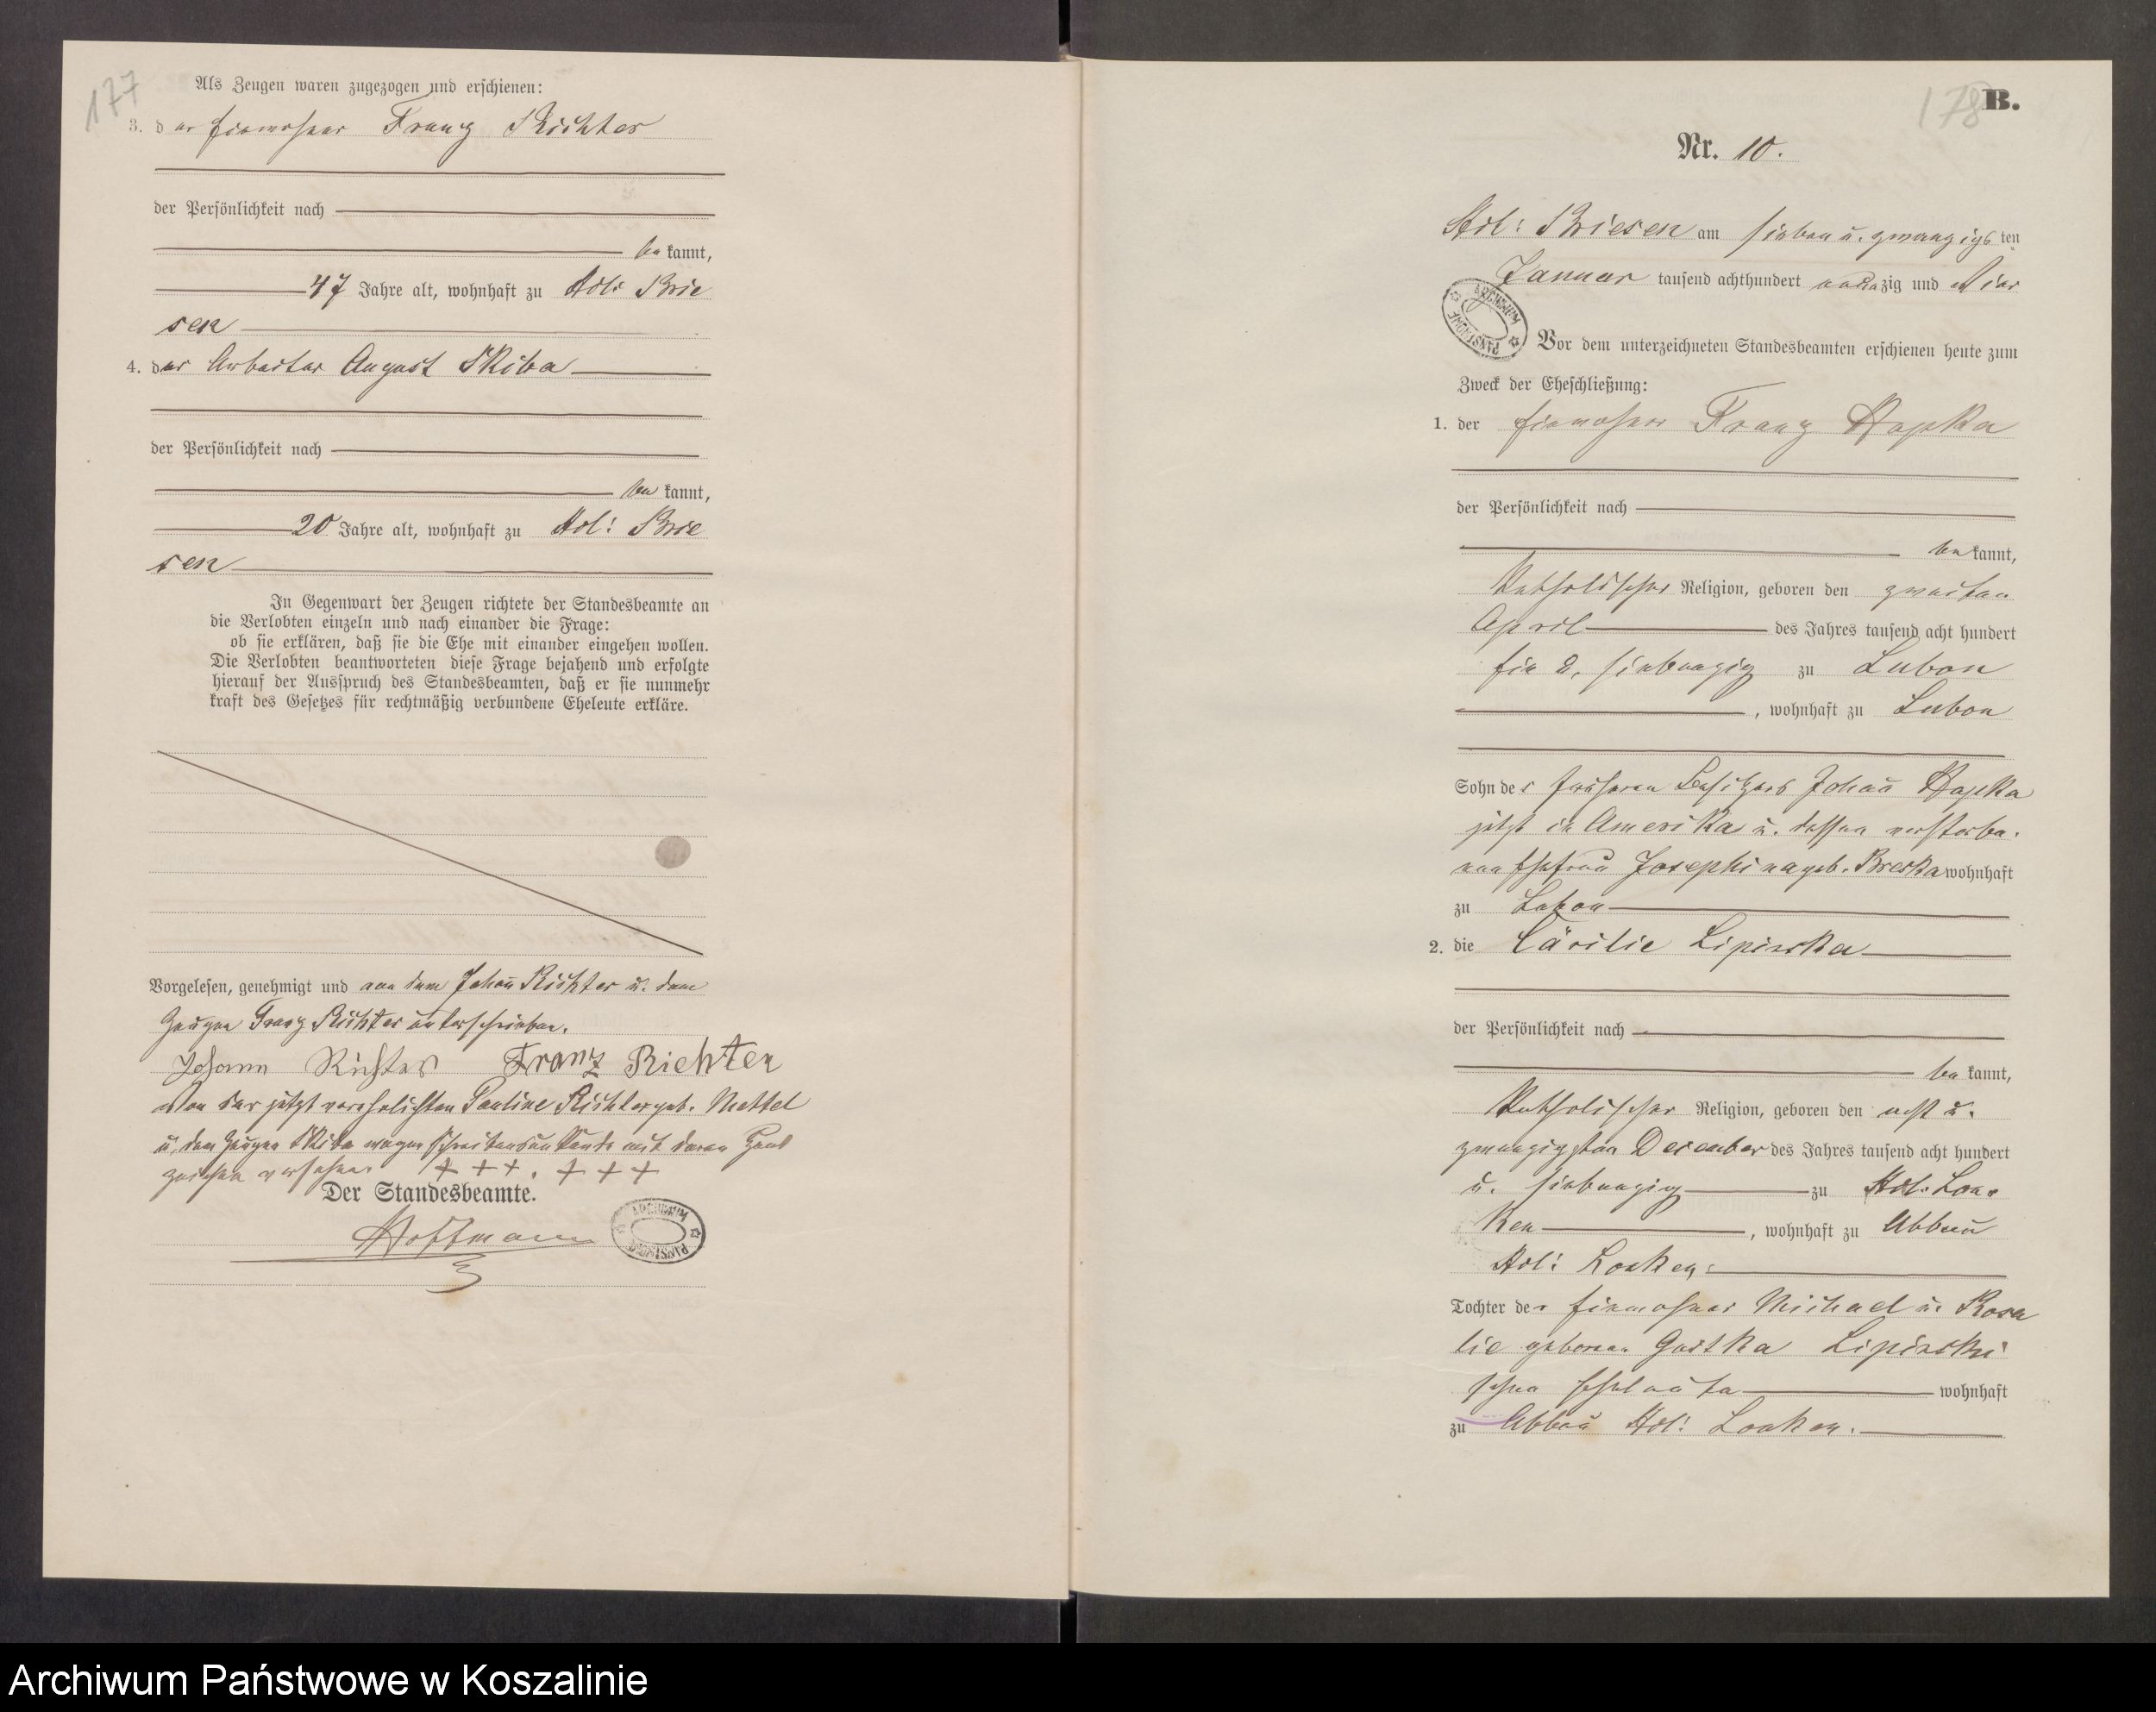 177
Als Zeugen waren zugezogen und erschienen:
3. der Einwohner Franz Richter
der Persönlichkeit nach
be kannt,
47 Jahre alt, wohnhaft zu Adl: Brie
sen
4. der Arbeiter August Skiba
der Persönlichkeit nach
be kannt,
20 Jahre alt, wohnhaft zu Adl: Brie
sen
In Gegenwart der Zeugen richtete der Standesbeamte an
die Verlobten einzeln und nach einander die Frage:
ob sie erklären, daß sie die Ehe mit einander eingehen wollen.
Die Verlobten beantworteten diese Frage bejahend und erfolgte
hierauf der Ausspruch des Standesbeamten, daß er sie nunmehr
kraft des Gesetzes für rechtmäßig verbundene Eheleute erkläre.
Vorgelesen, genehmigt und von dem Johann Richter u. dem
Zeugen Franz Richter unterschrieben.
Johann Richter Franz Richter
Von der jetzt verehelichten Pauline Richter geb. Mettel
u. dem Zeugen Skiba wegen Schreibensunkunde mit deren Hand
zeichen versehen +++. +++
Der Standesbeamte.
Hoffmann
ARCHIWUM PAŃSTWOWE
178
B.
Nr. 10.
Adl: Briesen am sieben u. zwanzigsten
Januar tausend achthundert neunzig und vier
ARCHIWUM PAŃSTWOWE
Vor dem unterzeichneten Standesbeamten erschienen heute zum
Zweck der Eheschließung:
1. der Einwohner Franz Hapka
der Persönlichkeit nach
be kannt,
katholischer Religion, geboren den zweiten
April des Jahres tausend acht hundert
ein u. siebenzig zu Lubon
, wohnhaft zu Lubon
Sohn des früheren Besitzers Johann Hapka
jetzt in Amerika u. dessen verstorbe-
nen Ehefrau Josephina geb. Breska wohnhaft
zu Lubon
2. die Cäcilie Lipinska
der Persönlichkeit nach
be kannt,
katholischer Religion, geboren den acht u.
zwanzigsten December des Jahres tausend acht hundert
u. siebenzig zu Adl: Lon-
ken, wohnhaft zu Abbau
Adl: Lonken:
Tochter der Einwohner Michael u. Rosa
lie geborene Gostka Lipinski
schen Eheleute wohnhaft
zu Abbau Adl: Lonken.
Archiwum Państwowe w Koszalinie